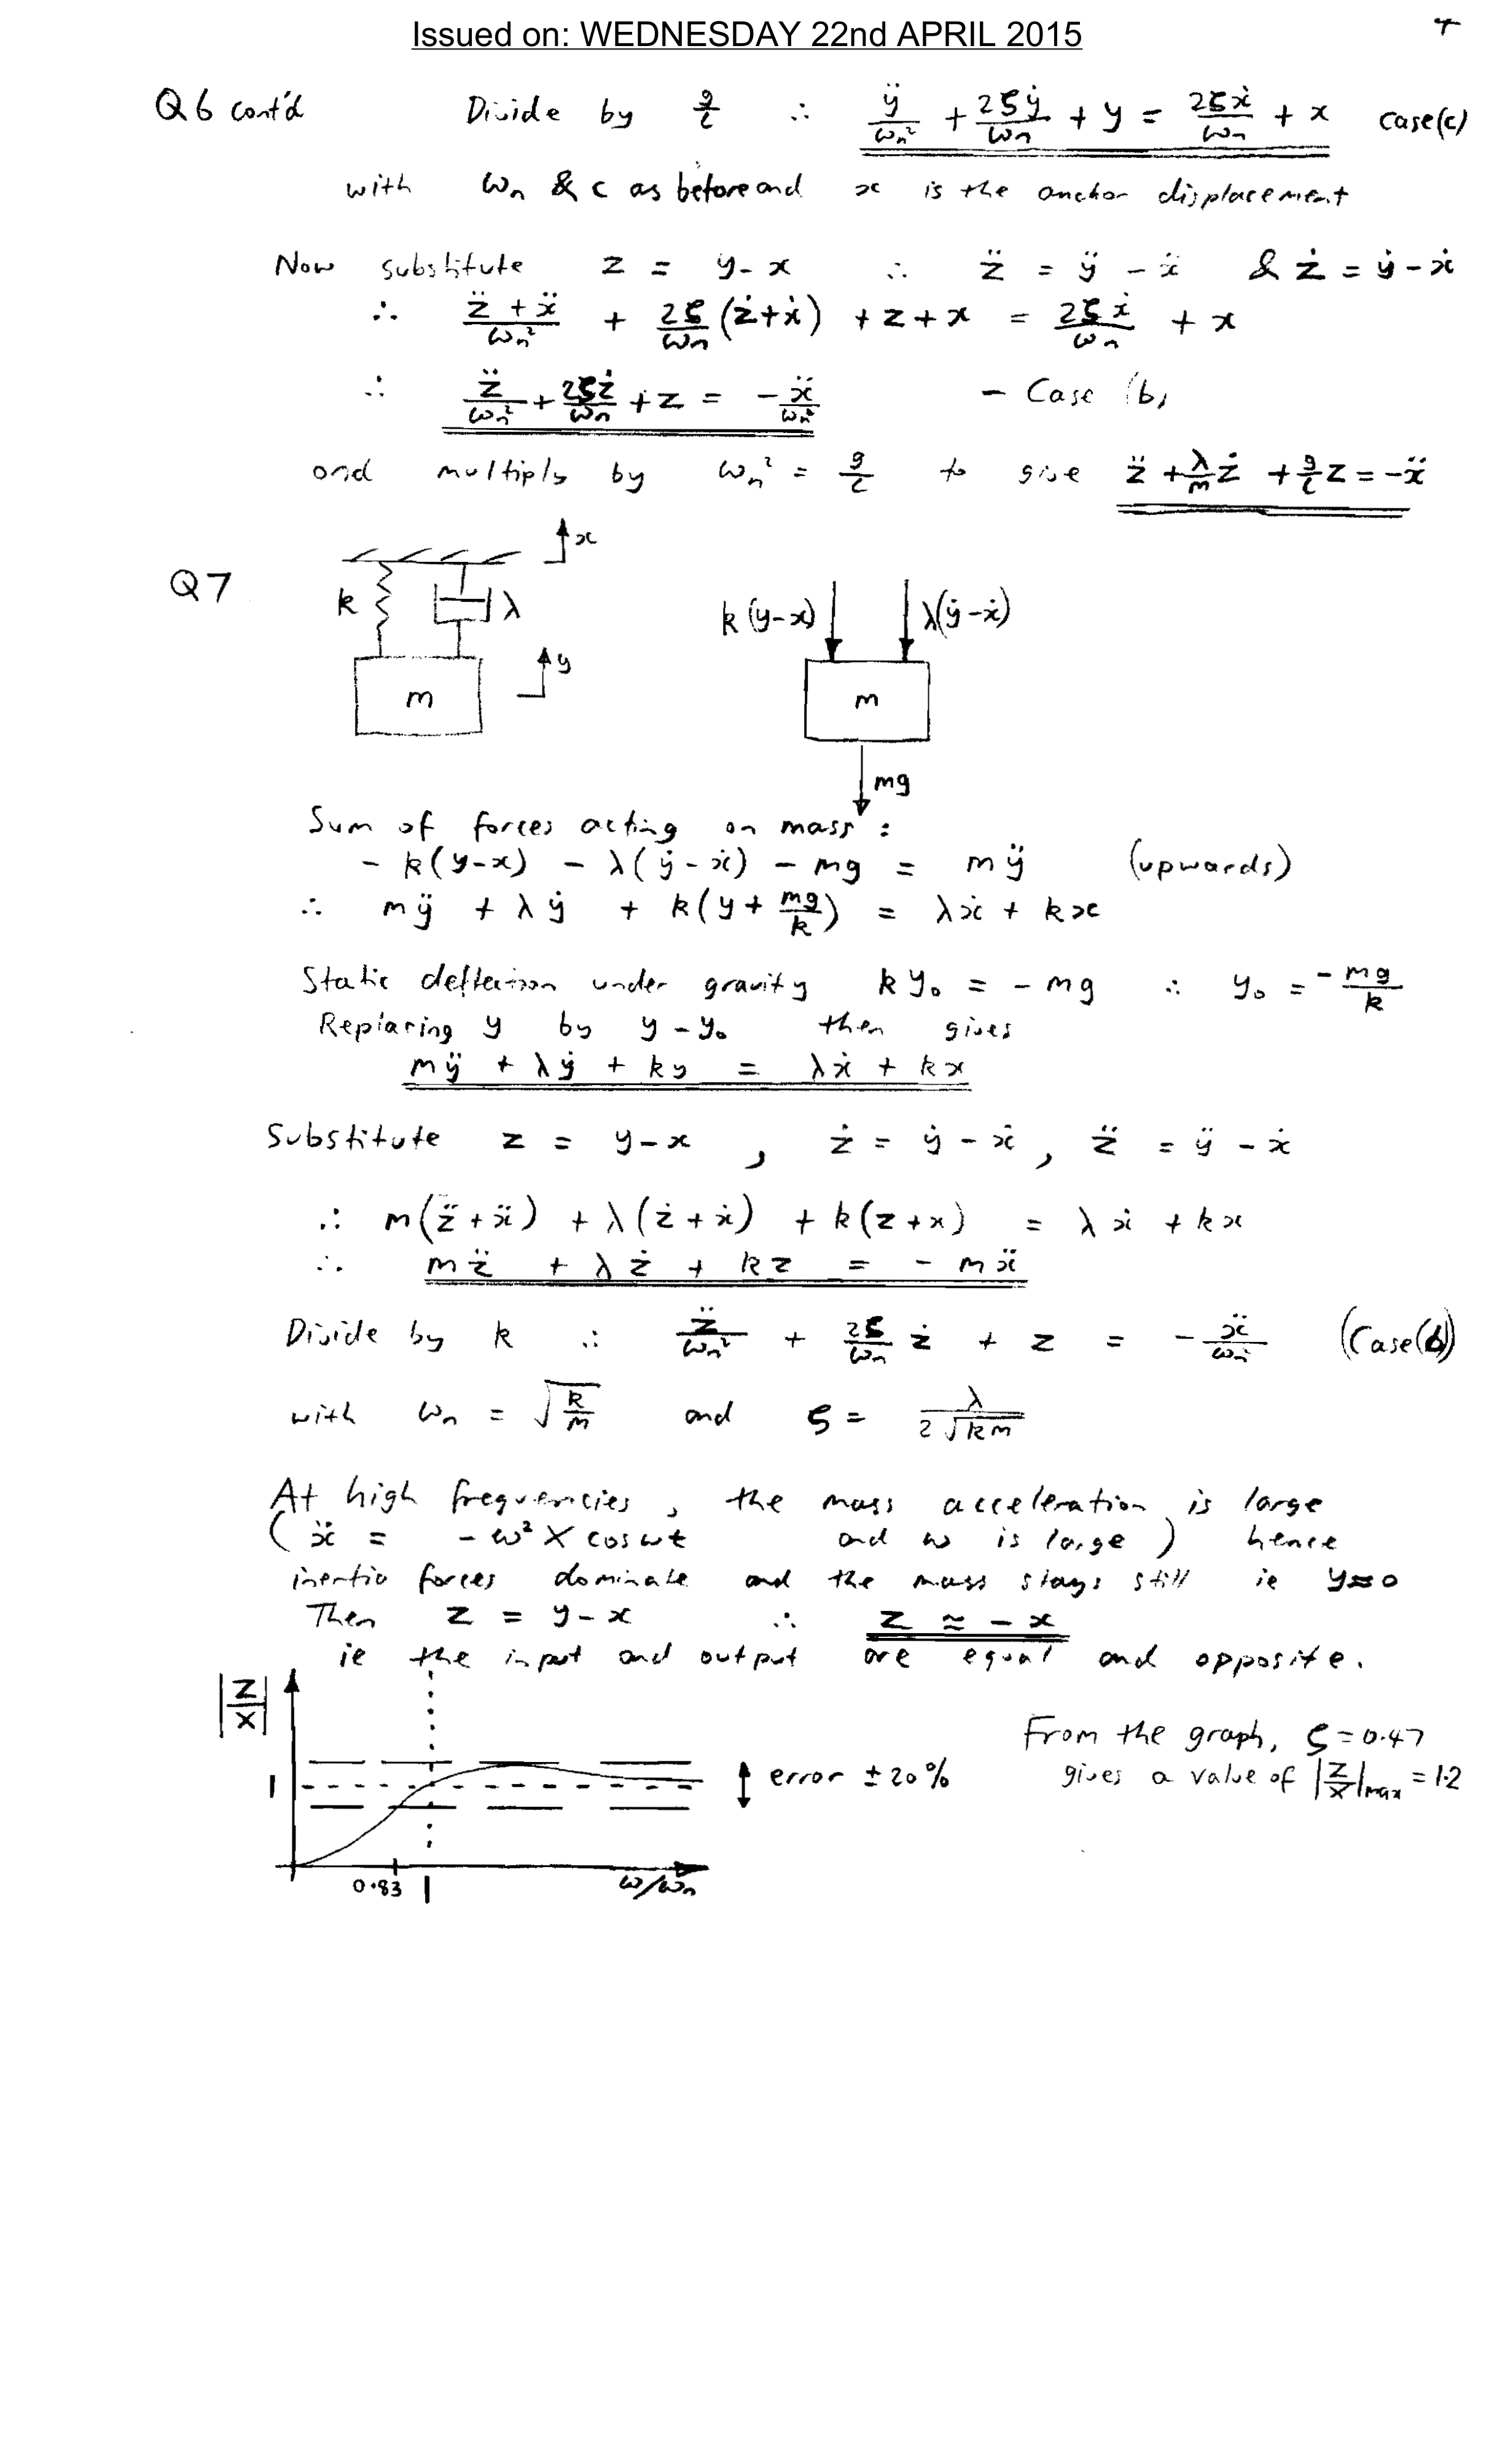 Issued on: WEDNESDAY 22nd APRIL 2015
Q6 cont'd Divide by g/l ∴ ÿ/ωn² + 2ζẏ/ωn + y = 2ζẋ/ωn + x case(c)
with ωn & c as before and x is the anchor displacement
Now substitute z = y - x ∴ z̈ = ÿ - ẍ & ż = ẏ - ẋ
∴ (z̈ + ẍ)/ωn² + 2ζ/ωn (ż + ẋ) + z + x = 2ζẋ/ωn + x
∴ z̈/ωn² + 2ζż/ωn + z = -ẍ/ωn² - Case (b)
and multiply by ωn² = g/l to give z̈ + λ/m ż + g/l z = -ẍ
Q7
x
k λ
k(y-x) λ(ẏ-ẋ)
y
m m
mg
Sum of forces acting on mass :
- k(y-x) - λ(ẏ-ẋ) - mg = mÿ (upwards)
∴ mÿ + λẏ + k(y + mg/k) = λẋ + kx
Static deflection under gravity k y₀ = - mg ∴ y₀ = -mg/k
Replacing y by y - y₀ then gives
mÿ + λẏ + ky = λẋ + kx
Substitute z = y - x , ż = ẏ - ẋ , z̈ = ÿ - ẋ
∴ m(z̈ + ẍ) + λ(ż + ẋ) + k(z + x) = λẋ + kx
∴ mz̈ + λż + kz = - mẍ
Divide by k ∴ z̈/ωn² + 2ζ/ωn ż + z = - ẍ/ωn² (Case(b))
with ωn = √(k/m) and ζ = λ/(2√(km))
At high frequencies, the mass acceleration is large
(ẍ = -ω² X cos ωt and ω is large) hence
inertia forces dominate and the mass stays still ie y≈0
Then z = y - x ∴ z ≈ - x
ie the input and output are equal and opposite.
|Z/X|
From the graph, ζ = 0.47
1 error ± 20% gives a value of |Z/X|max = 1.2
0.83 1 ω/ωn